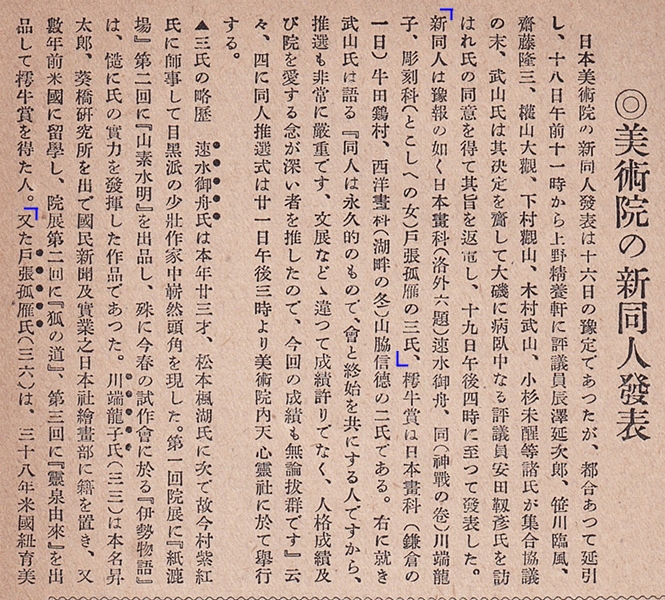 ◎美術院の新同人發表
日本美術院の新同人發表は十六日の豫定であつたが、都合あつて延引
し、十八日午前十一時から上野精養軒に評議員辰澤延次郎、笹川臨風、
齋藤隆三、橫山大觀、下村觀山、木村武山、小杉未醒等諸氏が集合協議
の末、武山氏は其決定を齎して大磯に病臥中なる評議員安田靫彥氏を訪
はれ氏の同意を得て其旨を返電し、十九日午後四時に至つて發表した。
新同人は豫報の如く日本畫科(洛外六題)速水御舟、同(神戰の卷)川端龍
子、彫刻科(とこしへの女)戶張孤雁の三氏、樗牛賞は日本畫科(鎌倉の
一日)牛田鷄村、西洋畫科(湖畔の冬)山脇信德の二氏である。右に就き
武山氏は語る『同人は永久的のもので、會と終始を共にする人ですから、
推選も非常に嚴重です、文展などゝ違つて成績許りでなく、人格成績及
び院を愛する念が深い者を推したので、今回の成績も無論拔群です』云
々、四に同人推選式は廿一日午後三時より美術院內天心靈社に於て擧行
する。
▲三氏の略歷 速水御舟氏は本年廿三才、松本楓湖氏に次で故今村紫紅
氏に師事して目黑派の少壯作家中嶄然頭角を現した。第一回院展に『紙漉
場』第二回に『山素水明』を出品し、殊に今春の試作會に於る『伊勢物語』
は、慥に氏の實力を發揮した作品であつた。川端龍子氏(三三)は本名昇
太郎、葵橋硏究所を出で國民新聞及實業之日本社繪畫部に籍を置き、又
數年前米國に留學し、院展第二回に『狐の道』、第三回に『靈泉由來』を出
品して樗牛賞を得た人。又た戶張孤雁氏(三六)は、三十八年米國紐育美